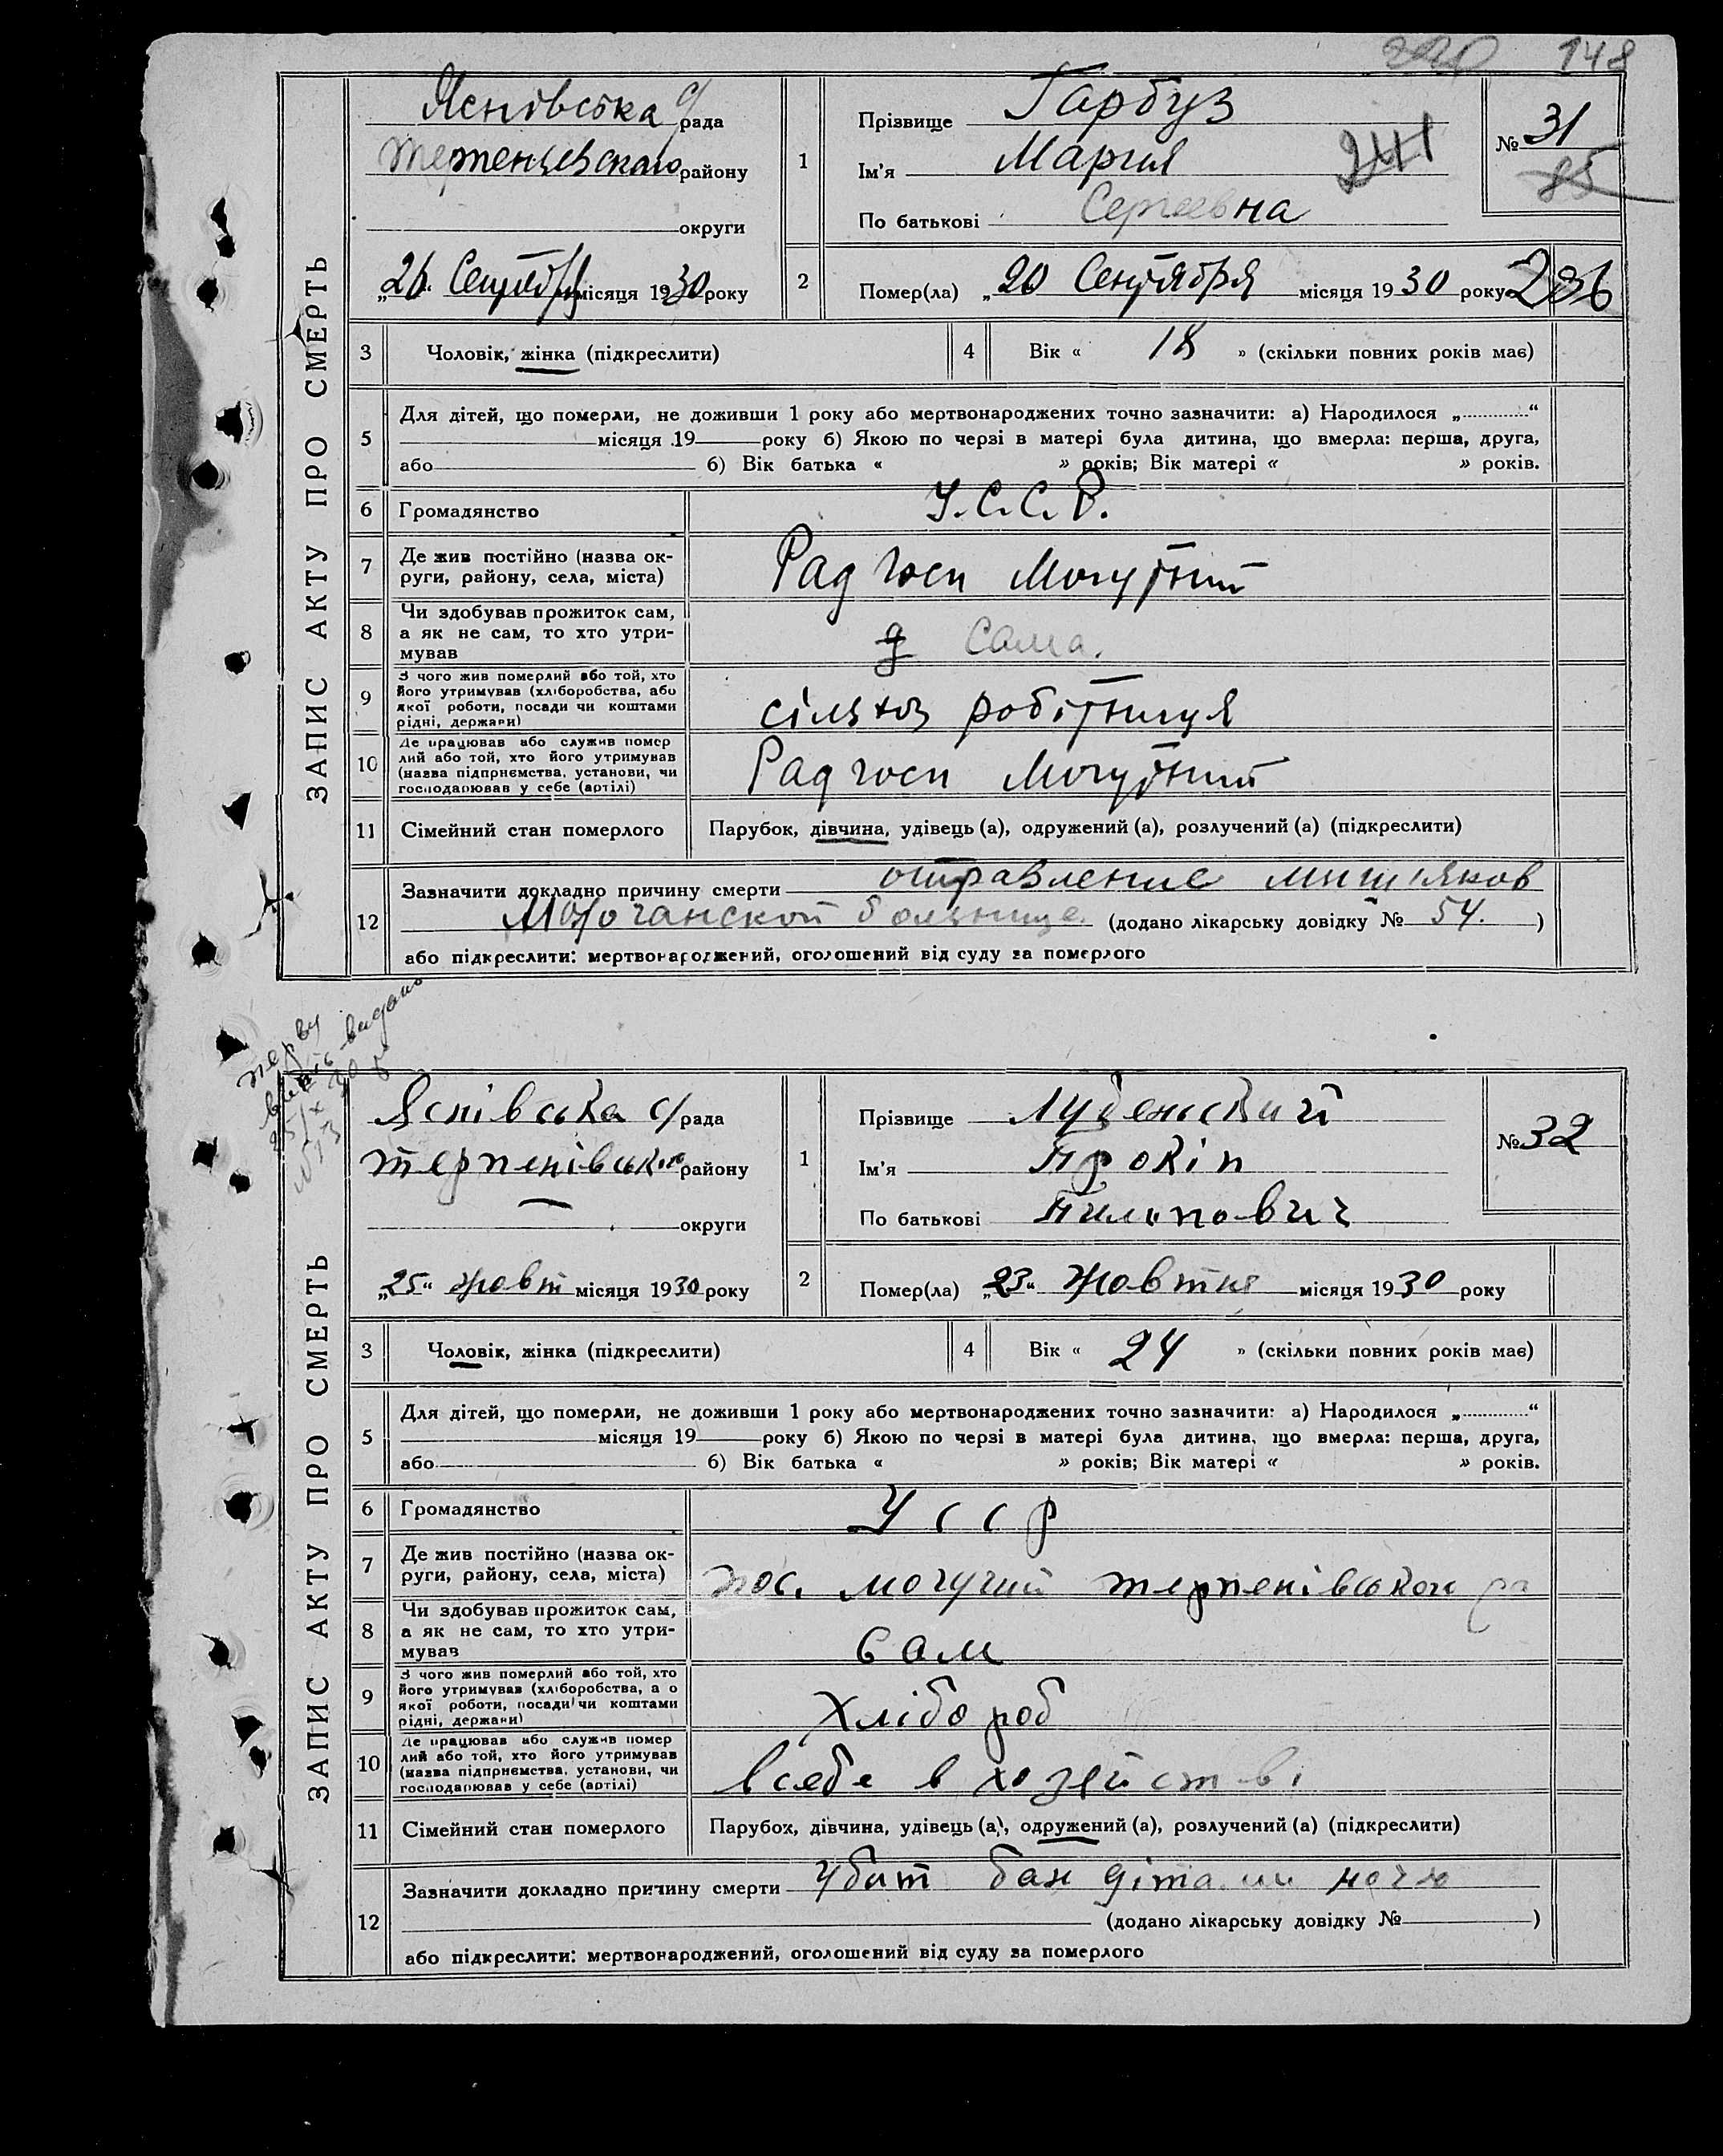 148
ЗАПИС АКТУ ПРО СМЕРТЬ
Яснівська с/рада
району
округи
„26“ Сентября місяця 1930 року
1
Прізвище Гарбуз
Ім’я Мария
По батькові Сергеевна
241
№ 31
85
2
Помер(ла) „20 Сентября місяця 1930 року 236
3 Чоловік, жінка (підкреслити)
4 Вік « 18 » (скільки повних років має)
5
Для дітей, що померли, не доживши 1 року або мертвонароджених точно зазначити: а) Народилося „............“
місяця 19 року б) Якою по черзі в матері була дитина, що вмерла: перша, друга,
або б) Вік батька « » років; Вік матері « » років.
6 Громадянство У.С.С.Р.
7 Де жив постійно (назва ок-
руги, району, села, міста)
Радгосп Могутний
8 Чи здобував прожиток сам,
а як не сам, то хто утри-
мував
Сама.
9 З чого жив померлий або той, хто
його утримував (хліборобства, або
якої роботи, посади чи коштами
рідні, держави)
сільхоз робітниця
10 Де працював або служив помер
лий або той, хто його утримував
(назва підприємства, установи, чи
господарював у себе (артілі)
Радгосп Могутний
11 Сімейний стан померлого Парубок, дівчина, удівець (а), одружений (а), розлучений (а) (підкреслити)
12
Зазначити докладно причину смерти отравление мишьяков
больнице. (додано лікарську довідку № 54. )
або підкреслити: мертвонароджений, оголошений від суду за померлого
перву
випись видано
25/X 30 р
№ 13
ЗАПИС АКТУ ПРО СМЕРТЬ
Яснівська с/рада
терпенівського району
округи
„25“ жовт місяця 1930 року
1
Прізвище Лубенський
Ім’я Прокіп
По батькові Пилипович
№ 32
2
Помер(ла) „23“ Жовтня місяця 1930 року
3 Чоловік, жінка (підкреслити)
4 Вік « 24 » (скільки повних років має)
5
Для дітей, що померли, не доживши 1 року або мертвонароджених точно зазначити: а) Народилося „............“
місяця 19 року б) Якою по черзі в матері була дитина, що вмерла: перша, друга,
або б) Вік батька « » років; Вік матері « » років.
6 Громадянство УССР
7 Де жив постійно (назва ок-
руги, району, села, міста)
пос. могучий терпенівськом ра
8 Чи здобував прожиток сам,
а як не сам, то хто утри-
мував
сам
9 З чого жив померлий або той, хто
його утримував (хліборобства, а о
якої роботи, посади чи коштами
рідні, держави)
Хлібороб
10 Де працював або служив помер
лий або той, хто його утримував
(назва підприємства, установи, чи
господарював у себе (артілі)
в себе в хозяйстві
11 Сімейний стан померлого Парубох, дівчина, удівець (а), одружений (а), розлучений (а) (підкреслити)
12
Зазначити докладно причину смерти Убит бандітами ночю
(додано лікарську довідку № )
або підкреслити: мертвонароджений, оголошений від суду за померлого